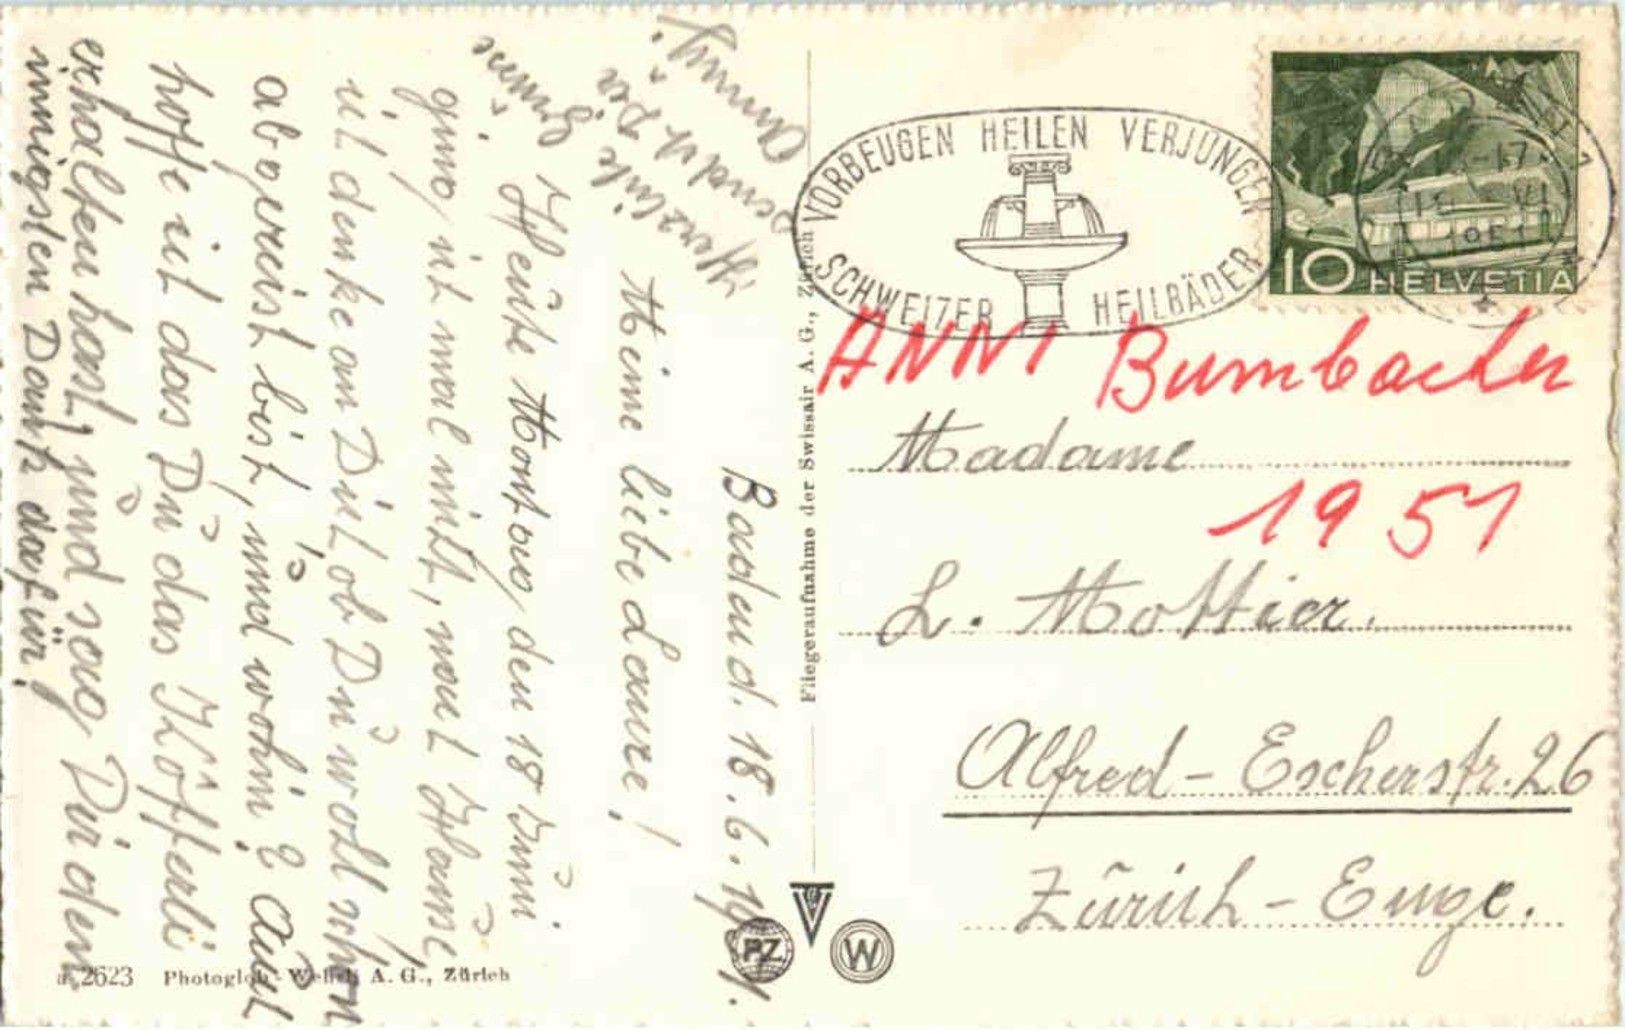 Baden d. 18. 6. 1951.
Meine liebe Laure!
Heute Montag den 18 Juni
ging ich mal mit, nach Hause,
ich denke an Dich ob Du wohl schon
abgereist bist, und wohin? Auch
hoffe ich das Du das Köfferli
erhalten hast, und sag Dir den
innigsten Dank dafür!
Herzliche Grüsse
sendet Dir
Anny
VORBEUGEN HEILEN VERJUNGEN
SCHWEIZER HEILBÄDER
-17
VI
1951
10 HELVETIA
ANNI Bumbacher
Madame
1951
L. Mottier.
Alfred-Escherstr. 26
Zürich-Enge.
Fliegeraufnahme der Swissair A. G., Zürich
PZ
W
a 2623 Photoglob-Wehrli A. G., Zürich